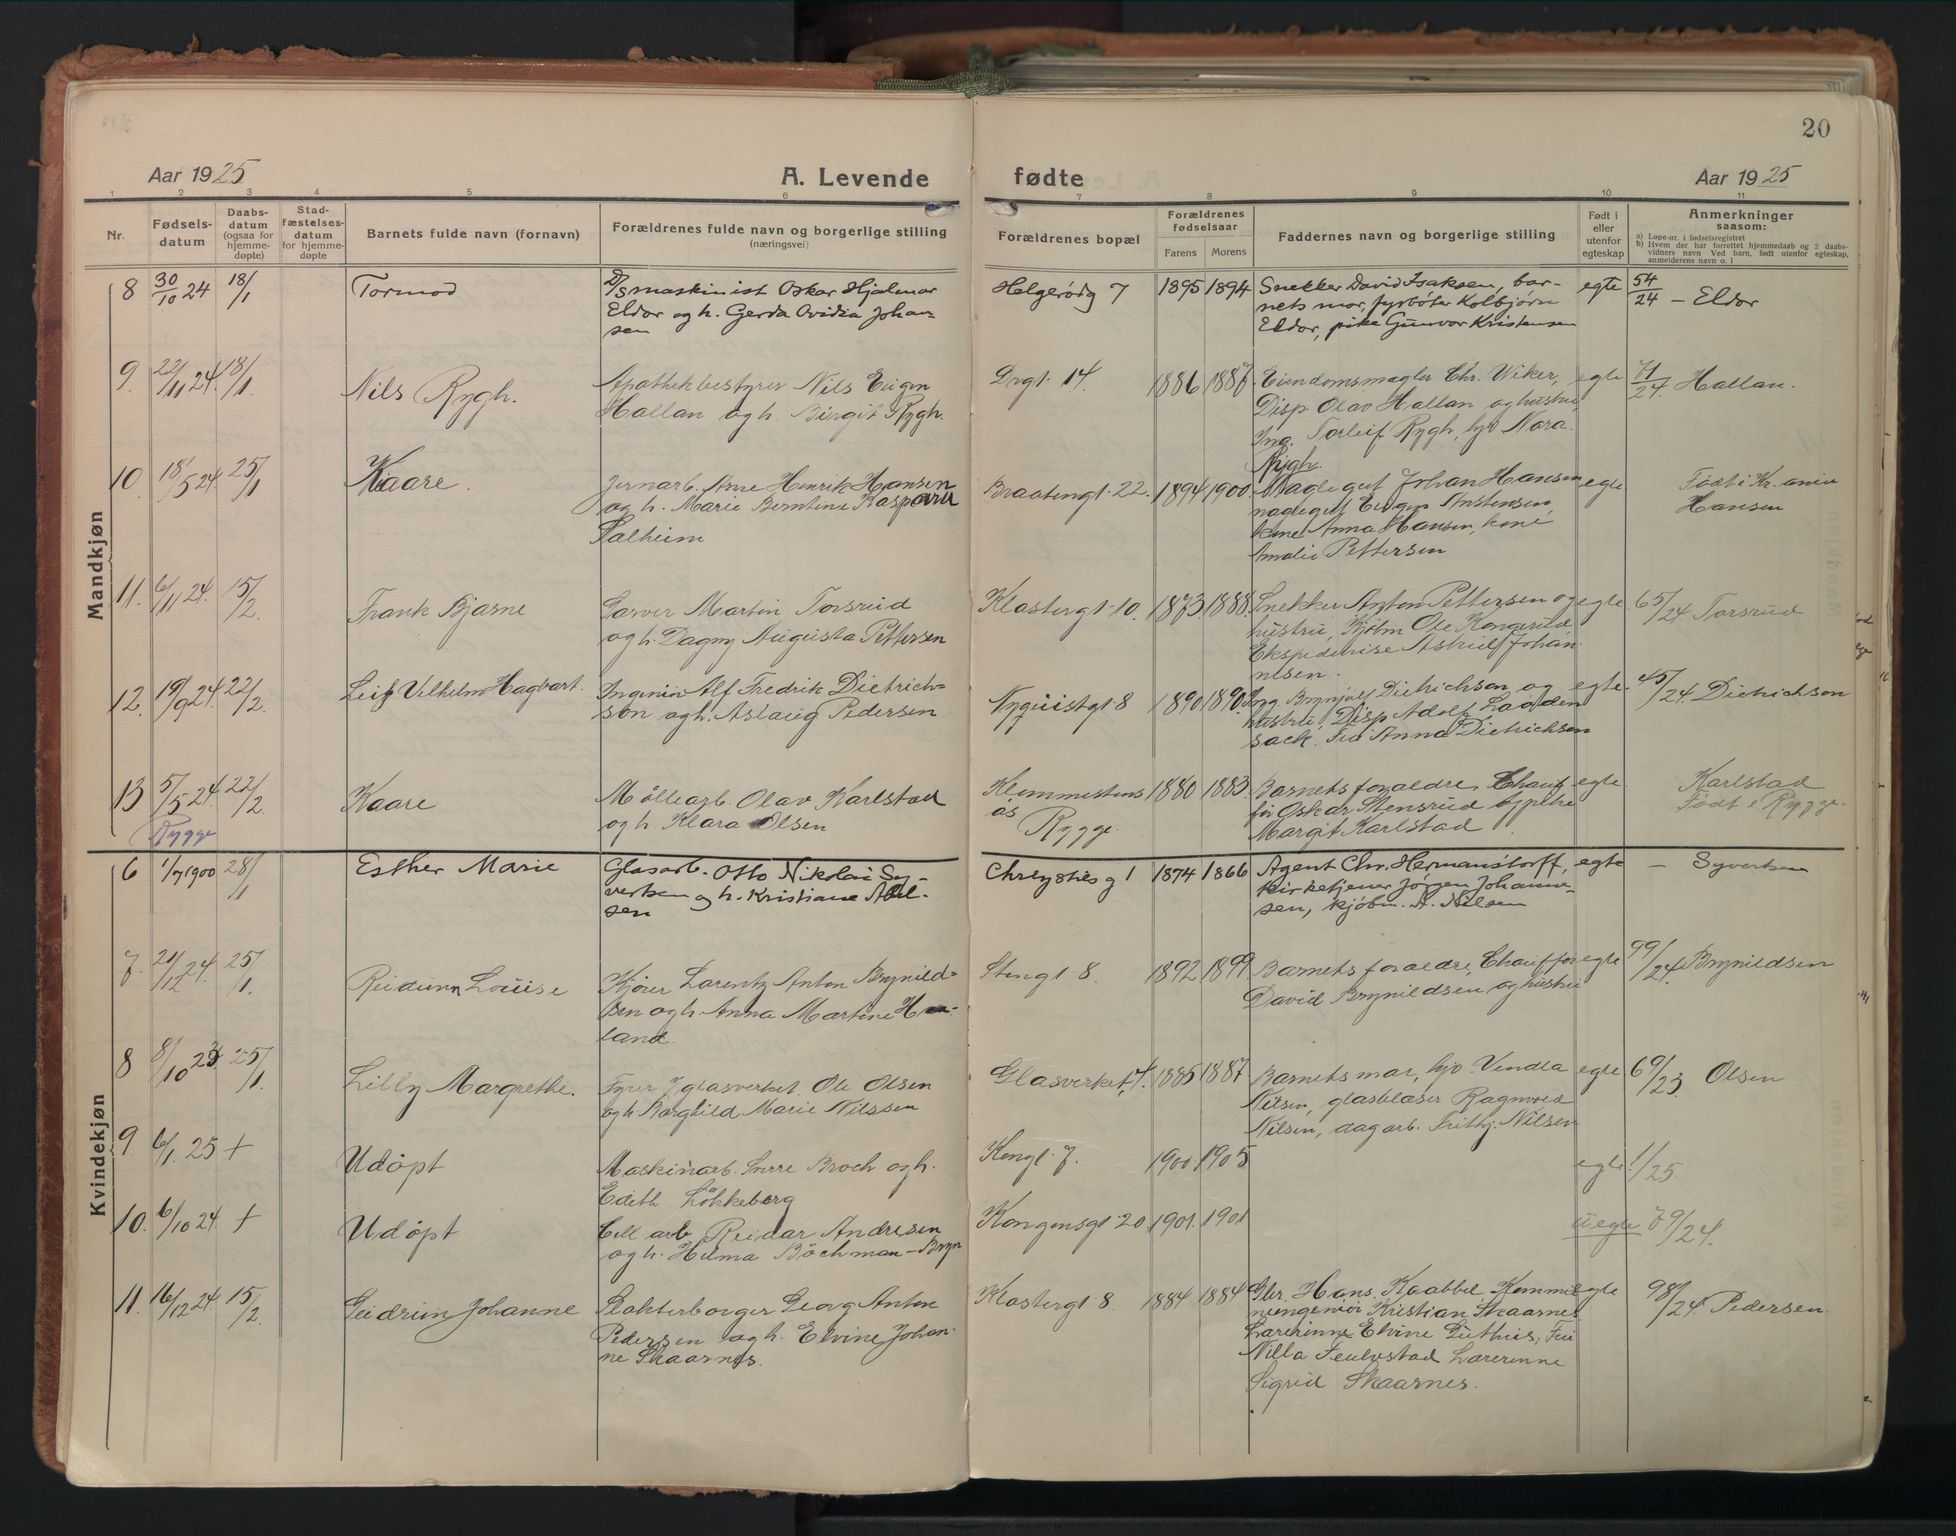 20
Aar 1925
A. Levende
fødte
Aar 1925
1 2 3 4 5 6 7 8 9 10 11
Nr.
Fødsels-
datum
Daabs-
datum
(ogsaa for
hjemme-
døpte)
Stad-
fæstelses-
datum
for hjemme-
døpte
Barnets fulde navn (fornavn)
Forældrenes fulde navn og borgerlige stilling
(næringsvei)
Forældrenes bopæl
Forældrenes
fødselsaar
Farens Morens
Faddernes navn og borgerlige stilling
Født i
eller
utenfor
egteskap
Anmerkninger
saasom:
a) Løpe-nr. i fødselsregistret
b) Hvem der har forrettet hjemmedaab og 2 daabs-
vidners navn Ved barn, født utenfor egteskap,
anmelderens navn o. l
Mandkjøn
8 30/10 24 18/1 Tormod
D/Smaskinist Oskar Hjalmar
Eldor og h. Gerda Ovidia Johan-
sen
Helgerødg 7 1895 1894
Snekker David Isaksen, bar-
nets mor, fyrbøter Kolbjørn
Eldor, pike Gunvor Kristensen
egte 54/24 – Eldor
9. 22/11 24. 18/1 Nils Rygh.
Apothekbestyrer Nils Eugen
Hallan og h. Birgit Rygh.
Drgt. 14. 1886 1887
Eiendomsmagler Chr. Wiker,
Disp Olav Hallan og hustru,
Ing. Torleif Rygh, Nora
Rygh.
egte 71/24. Hallan.
10. 18/5 24 25/1 Kaare.
Jernarb. Arne Henrik Hansen
og h. Marie Berntine Kasparu
Salheim
Braatengt. 22. 1894 1900
Johan Hansen
Anstensen,
kone Anna Hansen, kone
Amalie Pettersen
egte Født i Kr.ania
Hansen
11. 6/11 24. 15/2. Frank Bjarne
Garver Martin Torsrud
og h. Dagny Augusta Pettersen
Klostergt. 10. 1873. 1888.
Snekker Anton Pettersen og
hustru, Kjøbm Ole Kongerud
Astrid Johan
nesen.
egte 65/24 Torsrud
12. 19/9 24 22/2. Leif Vilhelm Hagbart.
Ingeniør Alf Fredrik Dietrich-
son og h. Aslaug Pedersen
Nyquistgt. 8 1890 1890.
Ing. Brynjulf Dietrichson og
hustru, Disp Adolf
sack. Fru Anna Dietrichsen
egte. 45/24. Dietrichson
13 5/5 24. 22/2 Kaare
Rygge
Mølllearb. Olav Karlstad
og h. Klara Olsen
Klommestens
ås
Rygge.
1880 1883.
Barnets foraldre, Chauf
før Oskar Stensrud
Margit Karlstad
egte Karlstad
Født i Rygge.
Kvindekjøn
6 1/7 1900 28/1 Esther Marie
Glasarb. Otto Nikolai Sy-
vertsen og h. Kristiane Abel-
sen
Chreystiesg 1 1874 1866
Agent Chr. Hermanstorff,
kirketjener Jørgen Johanne-
sen, kjøbm. A. Nilsen
egte – Syvertsen
7. 21/12 24. 25/1. Reidunn Louise
Kjører Lorentz Anton Brynild-
sen og h. Anna Martine
land.
Stengt. 8. 1892. 1899
Barnets foraldre, Chauffør
David Brynildsen og hustru
egte 99/24. Brynildsen
8 8/10 23 25/1. Lilly Margrethe.
Fyrer v glasverket Ole Olsen
og h. Borghild Marie Nilssen
Glasverket, 4. 1885 1887
Barnets mor, Vendla
Nilsen, glasblaser Ragnvald
Nilsen, dagarb. Frithj. Nilsen
egte 69/23. Olsen
9 6/1. 25 + Udøpt
Maskinarb. Sverre Broch og h.
Edith Løkkeberg
Kongt. 7. 1900 1905
egte 1/25.
10. 6/10 24. + Udøpt
Cell arb Reidar Andresen
og h. Hilma Böchman – Bryn
Kongensgt. 20. 1901. 1901
uegte 79/24.
11. 16/12 24. 15/2. Geidrun Johanne
Slakterborger Georg Anton
Pedersen og h. Elvine Johan-
ne Skaarnes.
Klostergt. 8. 1884 1884
Hans Kaabbel Kemmi
ningeniør Kristian Skaarnes
Lærerinne Elvine Guthus, Fru
Nilla Lærerinne
Sigrid Skaarnes.
egte 98/24 Pedersen.